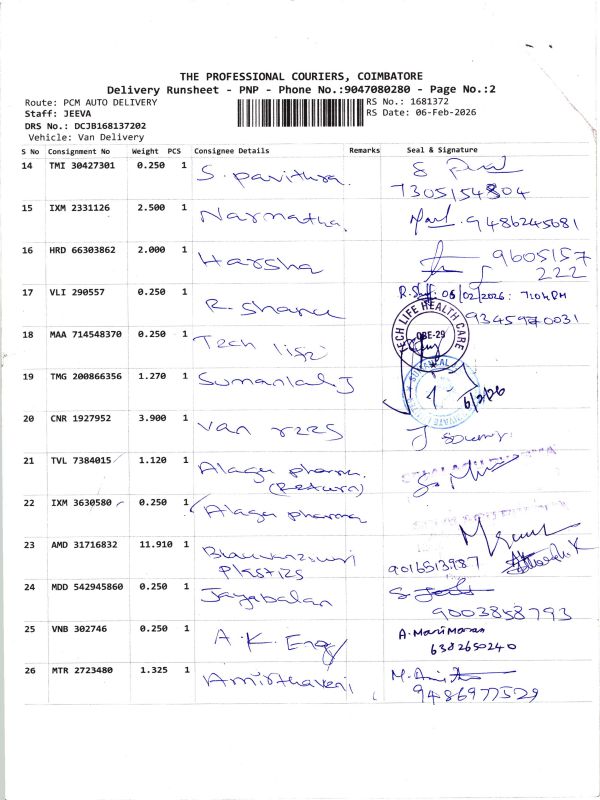 THE PROFESSIONAL COURIERS, COIMBATORE
Delivery Runsheet - PNP - Phone No.:9047080280 - Page No.:2
Route: PCM AUTO DELIVERY RS No.: 1681372
Staff: JEEVA RS Date: 06-Feb-2026
DRS No.: DCJB168137202
Vehicle: Van Delivery
S No Consignment No Weight PCS Consignee Details Remarks Seal & Signature
14 TMI 30427301 0.250 1 S. Pavithra.
7305154804
15 IXM 2331126 2.500 1 Narmatha. 9486245681
16 HRD 66303862 2.000 1 Harsha 9605157
222
17 VLI 290557 0.250 1 R. Shanu 06/02/2026: 7:04 PM
9345970031
18 MAA 714548370 0.250 1 Tech life
TECH LIFE HEALTH CARE
CBE-29
19 TMG 200866356 1.270 1 Sumanlal J
6/2/26
20 CNR 1927952 3.900 1 Van rzes
21 TVL 7384015 1.120 1 Alagu pharma.
(Return)
22 IXM 3630580 0.250 1 Alagu pharma
23 AMD 31716832 11.910 1
Plastics 9016813987
24 MDD 542945860 0.250 1 Jayabalan
9003858793
25 VNB 302746 0.250 1 A.K. Eng A. Marimaran
6382650240
26 MTR 2723480 1.325 1 Amirthaveni
9486977529